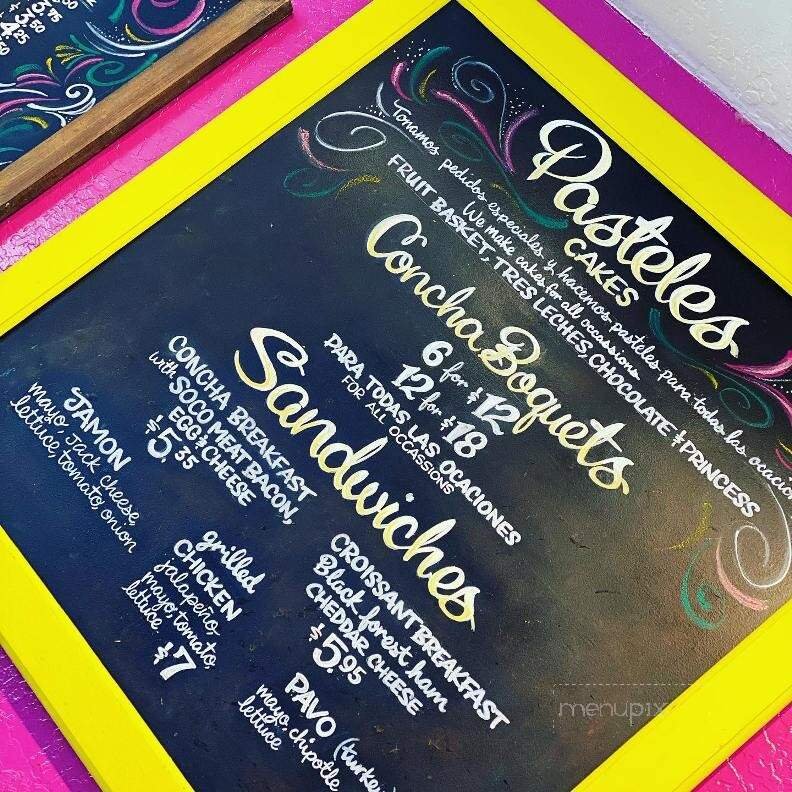 3.75
3.50
4.25
3.50
Pasteles
CAKES
Tonamos pedidos especiales y hacemos pasteles para todas las ocacion
We make cakes for all occassions
FRUIT BASKET, TRES LECHES, CHOCOLATE & PRINCESS
Concha Boquets
6 for $12
12 for $18
PARA TODAS LAS OCACIONES
FOR ALL OCCASSIONS
Sandwiches
CONCHA BREAKFAST
with SOCO MEAT BACON,
EGG & CHEESE
$5.35
CROISSANT BREAKFAST
Black forest ham
CHEDDAR CHEESE
$5.95
JAMON
mayo, Jack cheese,
lettuce, tomato, onion
grilled
CHICKEN
jalapeño
mayo, tomato,
lettuce
$7
PAVO (turke
mayo, chipotle
lettuce
menupix